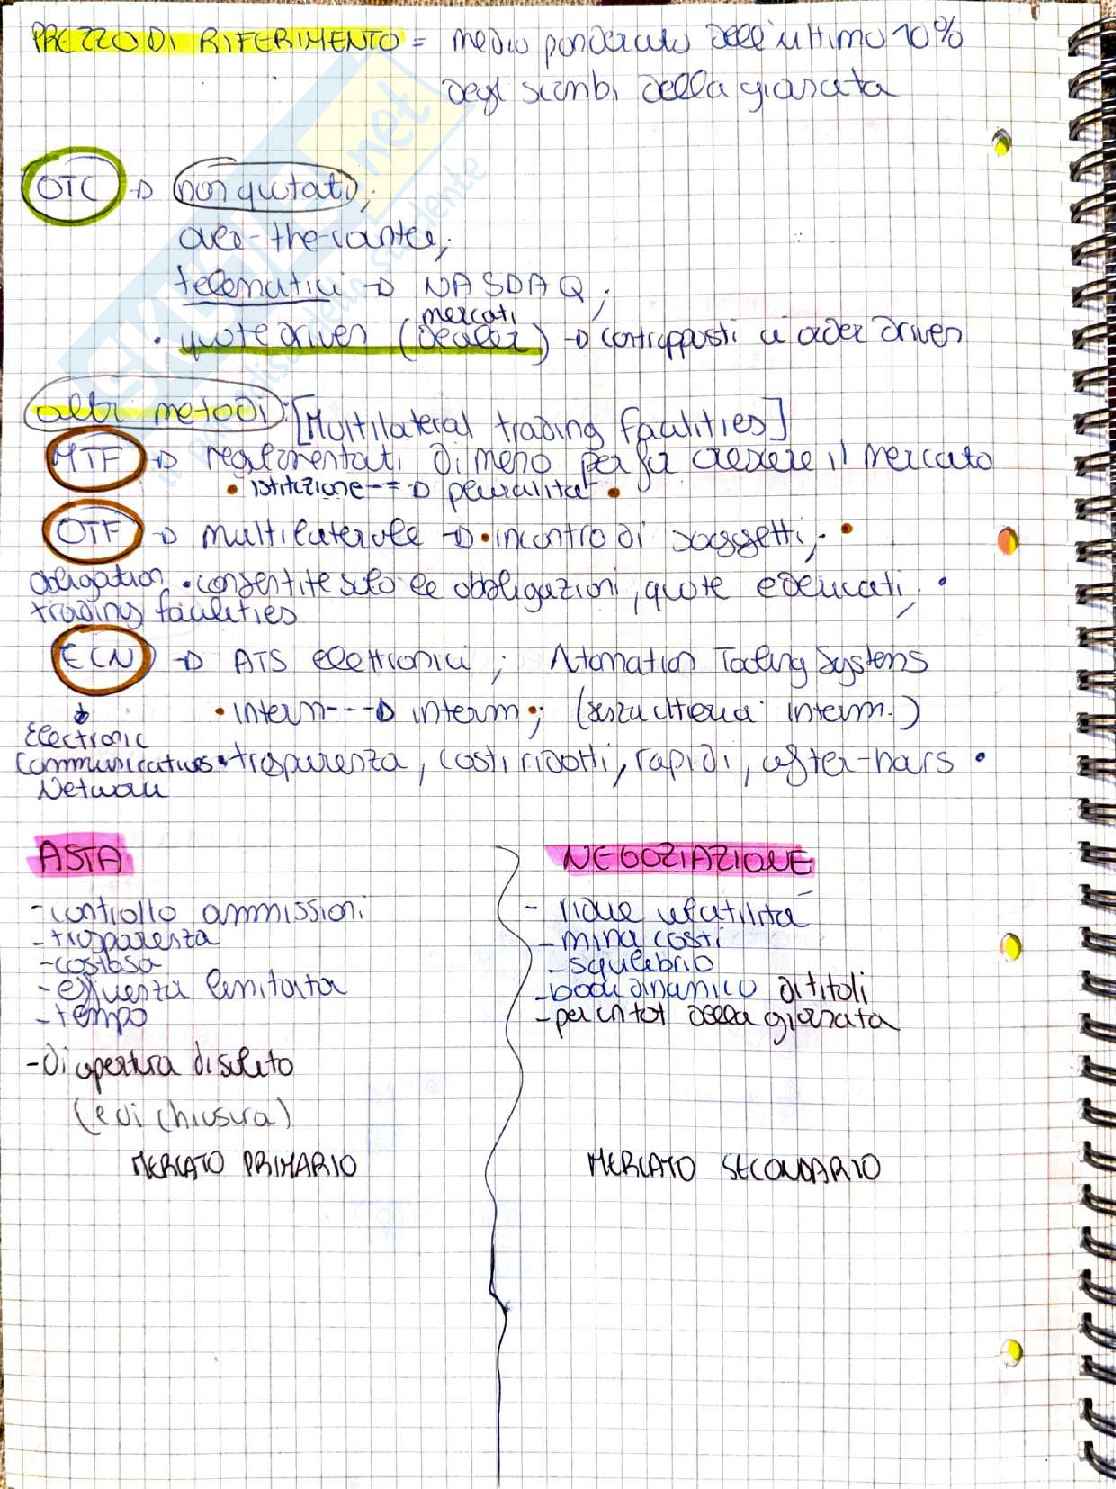 PREZZO DI RIFERIMENTO = media ponderata dell'ultimo 10%
degli scambi della giornata
OTC → non quotati;
over-the-counter;
telematici → NASDAQ;
mercati
• quote driven (dealer) → contrapposti ai order driven
altri metodi: [Multilateral trading facilities]
MTF → regolamentati di meno per far crescere il mercato
• istituzione --=→ pluralità •
OTF → multilaterale → • incontro di soggetti; •
obligation • consentite solo le obbligazioni, quote e derivati; •
trading facilities
ECN → ATS elettronici; Automation Trading Systems
• interm ---→ interm •; (senza ulteriori interm.)
Electronic
Communications • trasparenza, costi ridotti, rapidi, after-hours •
Network
ASTA
- controllo ammissioni
- trasparenza
- costosa
- efficienza limitata
- tempo
- di apertura discreto
(e di chiusura)
MERCATO PRIMARIO
NEGOZIAZIONE
- riduce volatilità
- minor costi
- squilibrio
- book dinamico di titoli
- per un tot della giornata
MERCATO SECONDARIO